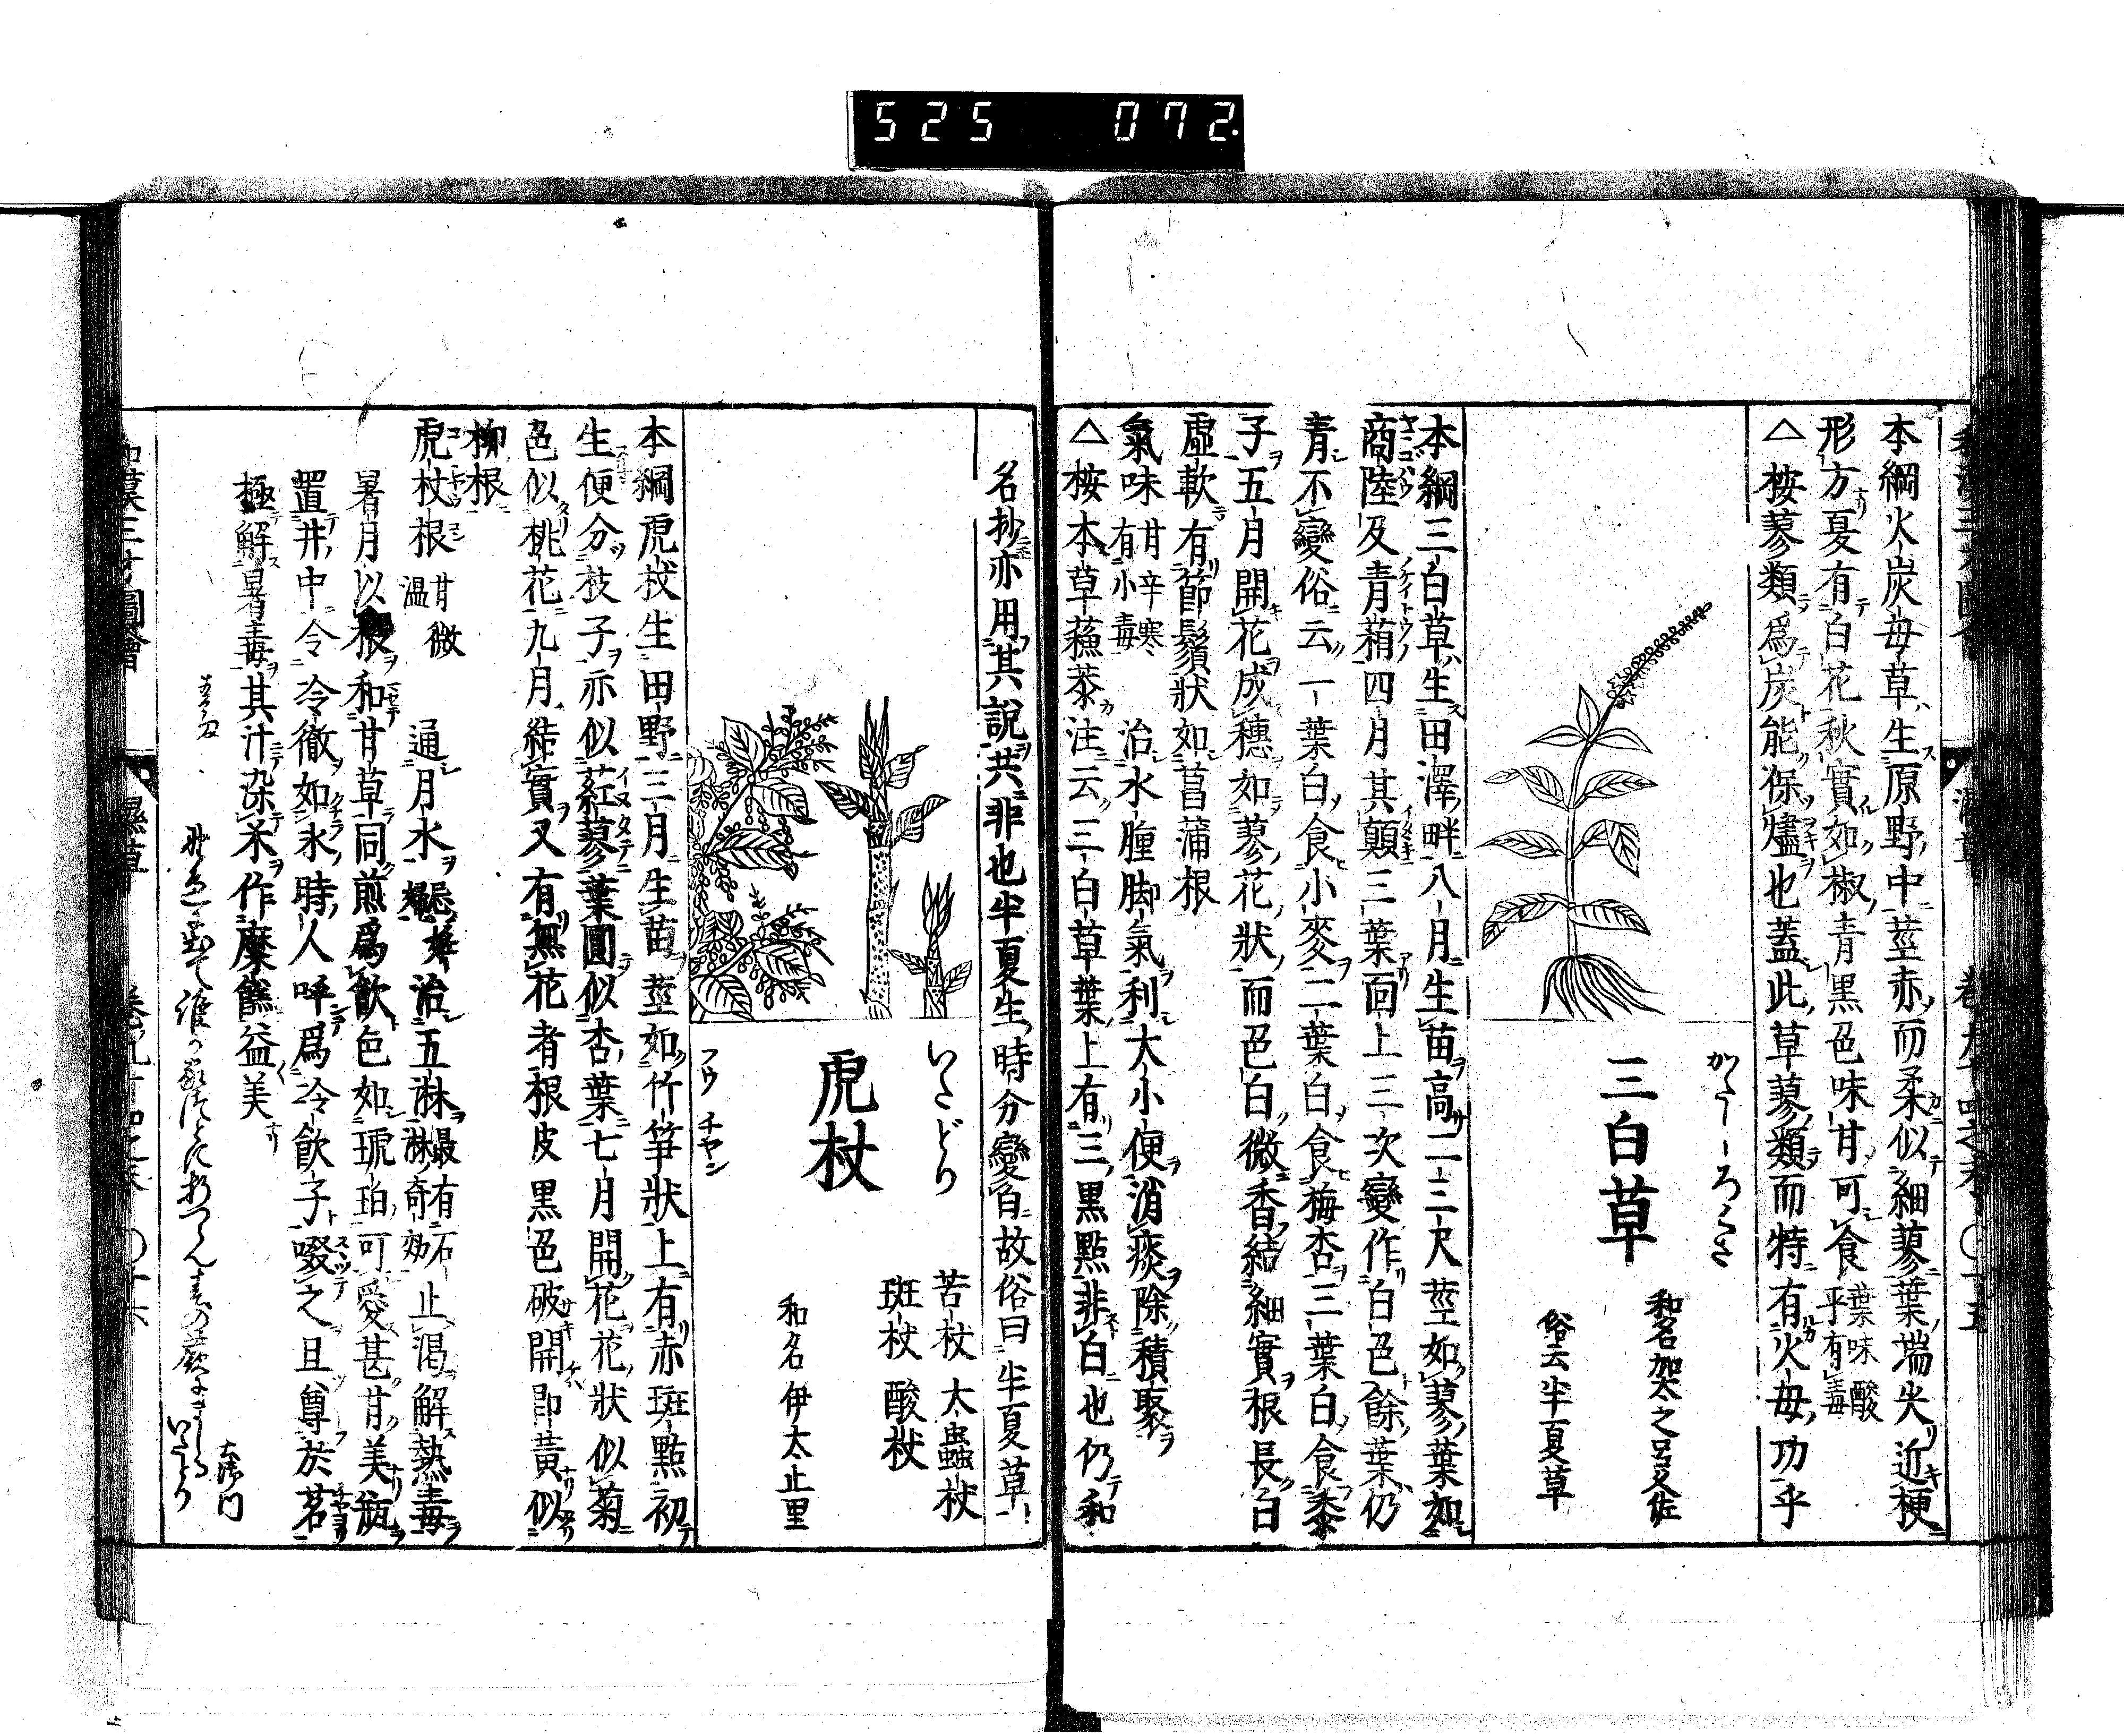 525 072
本綱火炭母草生原野中莖赤而柔似細蓼葉端尖近梗
形方夏有白花秋實如椒青黒色味甘可食 葉味酸平有毒
△桉蓼類爲炭能保爐也蓋此草蓼類而特有火母功乎
三白草
和名加太之呂久佐
俗云半夏草
本綱三白草生田澤畔八月生苗高二三尺莖如蓼葉如
商陸及青葙四月其顛三葉面上三次變作白色餘葉仍
青不變俗云一葉白食小麥二葉白食梅杏三葉白食黍
子五月開花成穗如蓼花狀而色白微香結細實根長白
虛軟有節鬚狀如菖蒲根
氣味 甘辛寒有小毒 治水腫脚氣利大小便消痰除積聚
△桉本草蘓恭注云三白草葉上有三黒點非白也仍和
名抄亦用其說共非也半夏生時分變白故俗曰半夏草
いたどり
虎杖
フウ チヤン
苦杖 大蟲杖
斑杖 酸杖
和名伊太止里
本綱虎杖生田野三月生苗莖如竹筍狀上有赤斑點初
生便分枝子亦似葒蓼葉圓似杏葉七月開花花狀似菊
色似桃花九月結實又有無花者根皮黒色破開即黃似
柳根
虎杖根 甘微温 通月水 治五淋 最有石淋奇効 止渴解熱毒
暑月以根和甘草同煎爲飲色如琥珀可愛甚甘美瓶
置井中令冷徹如氷時人呼爲冷飲子啜之且尊於茗
極解暑毒其汁染米作糜餻益美
和漢三才圖會
濕草